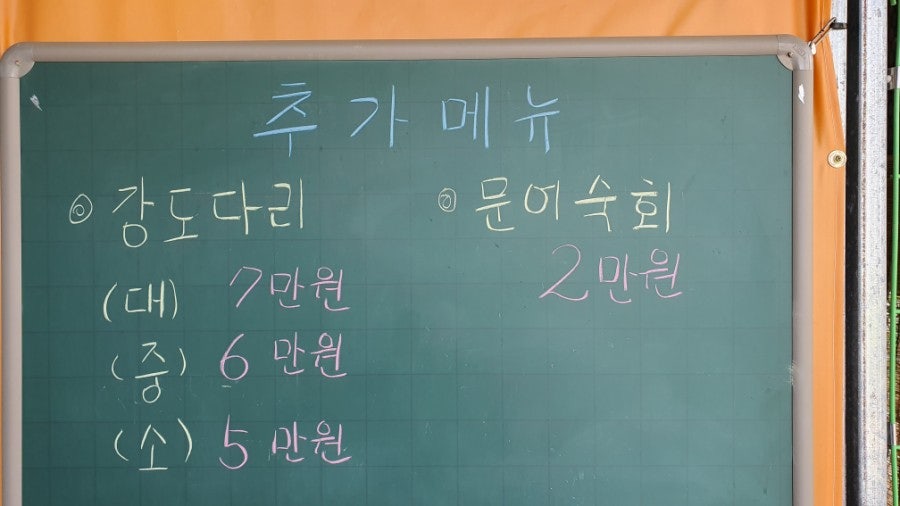 추가메뉴
◎ 강도다리
(대) 7만원
(중) 6만원
(소) 5만원
◎ 문어숙회
2만원